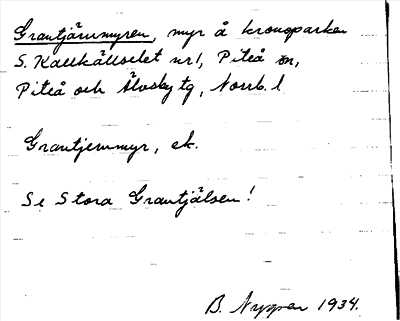 Grantjärnmyren, myr å kronoparken
S. Kallkällselet nr 1, Piteå sn,
Piteå och Älvsby tg, Norrb. l.
Grantjernmyr, ek.
Se Stora Grantjälsen!
B. Nyppen 1934.